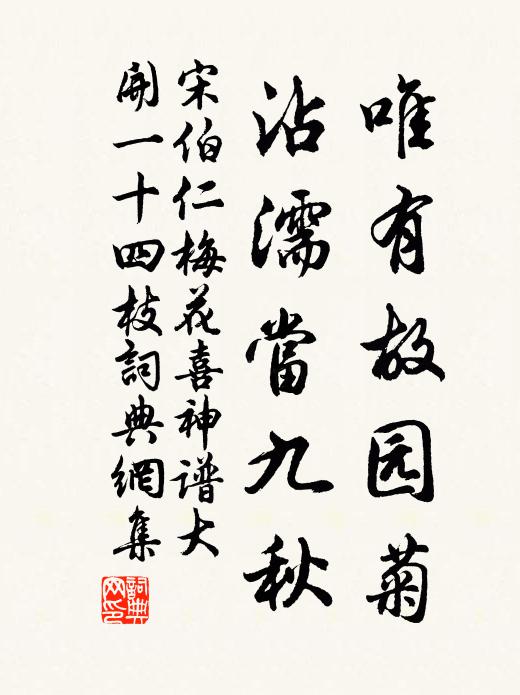 唯有故园菊
沾濡當九秋
宋伯仁梅花喜神谱大
開一十四枝詞典網集
詞典
网印